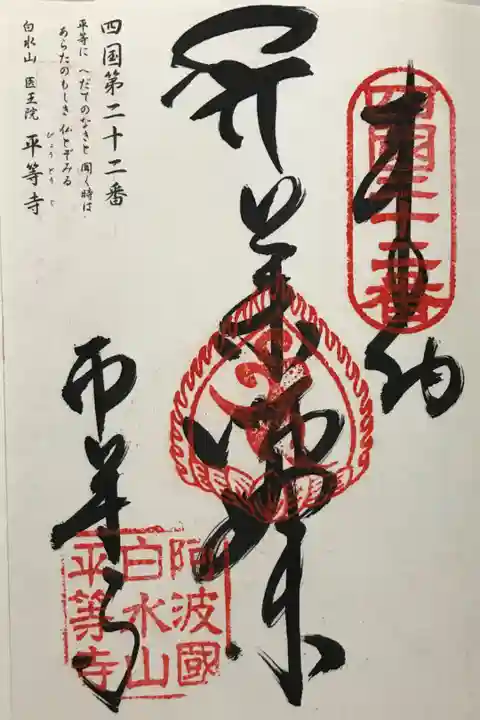 奉納
四國第二十二番
薬師如来
平等寺
阿波國
白水山
平等寺
四国第二十二番
平等に へだてのなきと 聞く時は
あらたのもしき 仏とぞみる
白水山 医王院 平等寺
びょうどうじ